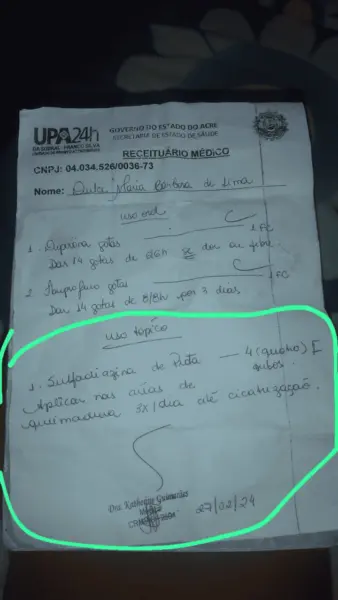 UPA24h
GOVERNO DO ESTADO DO ACRE
SECRETARIA DE ESTADO DE SAÚDE
RECEITUÁRIO MÉDICO
CNPJ: 04.034.526/0036-73
Nome: Maria Barbosa de Lima
uso oral
1. Dipirona gotas 1 FC
Dar 14 gotas de 6/6h se dor ou febre.
2 Ibuprofeno gotas 1 FC
Dar 14 gotas de 8/8h por 3 dias
uso tópico
1. Sulfadiazina de Prata — 4 (quatro)
tubos.
Aplicar nas áreas de
queimadura 3x/dia até cicatrização.
Dra. Katherine Guimarães
Médica
27/02/24